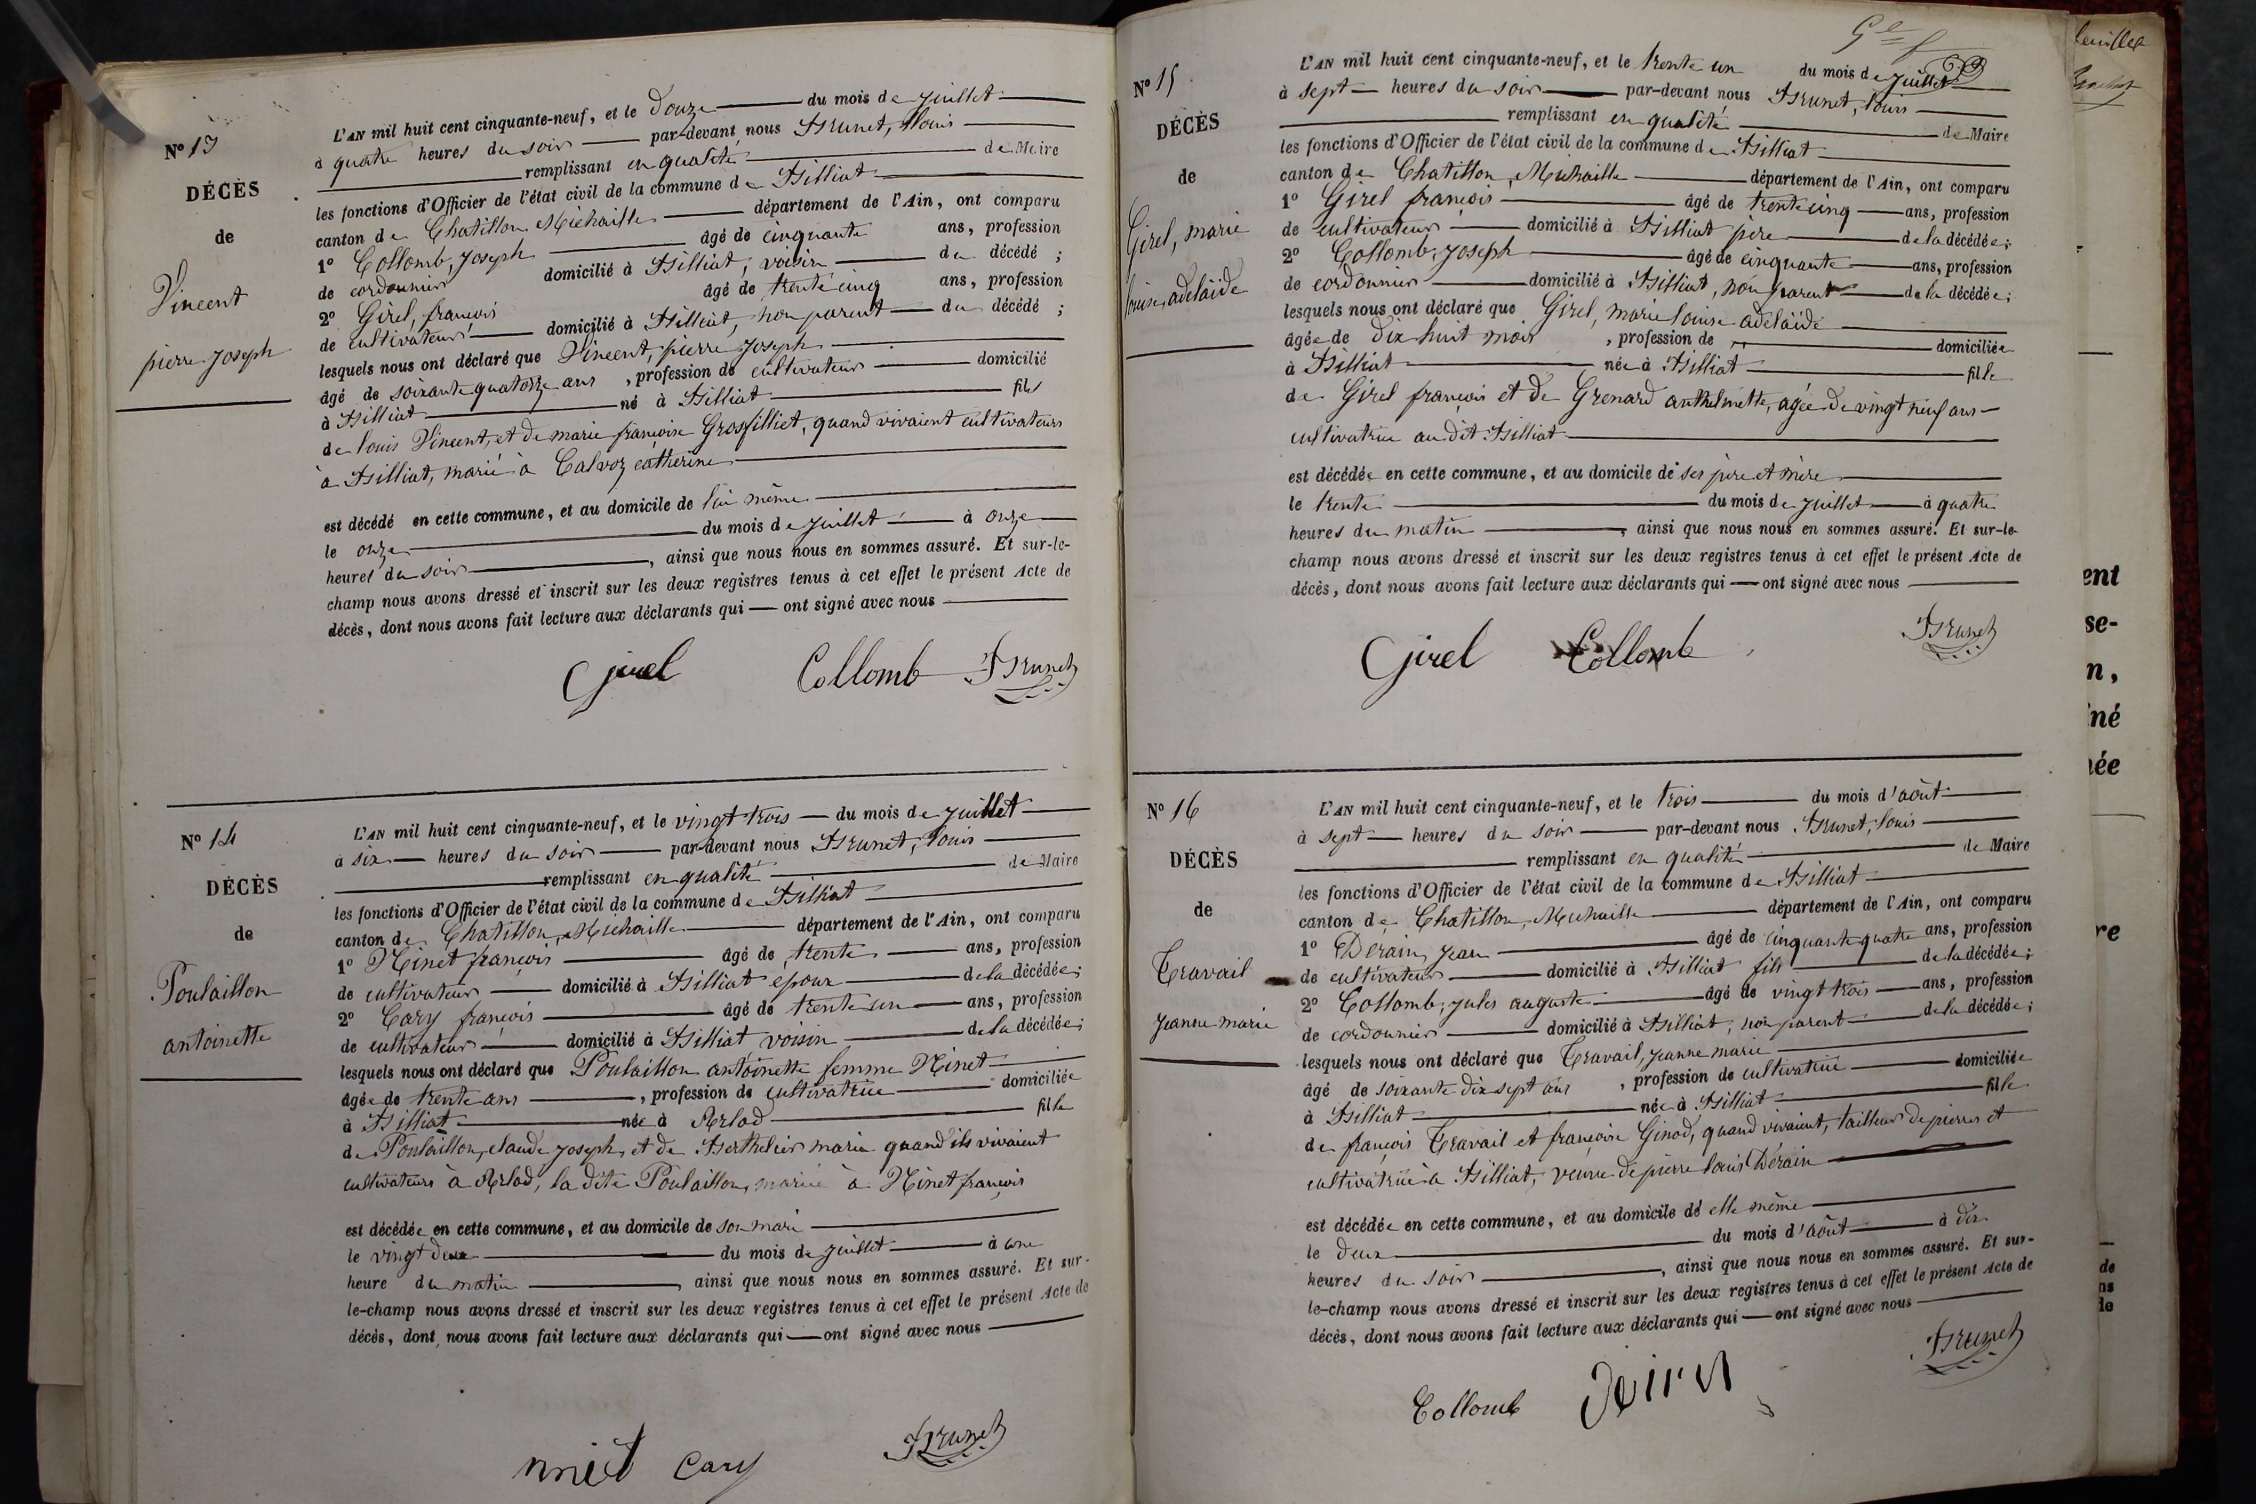 N° 13
DÉCÈS
de
Vincent
pierre Joseph
L'AN mil huit cent cinquante-neuf, et le Douze du mois de juillet
à quatre heures du soir par-devant nous Brunet, Louis
remplissant en qualité de Maire
les fonctions d'Officier de l'état civil de la commune de Billiat
canton de Chatillon Michaille département de l'Ain, ont comparu
1° Collomb, Joseph âgé de cinquante ans, profession
de cordonnier domicilié à Billiat, voisin du décédé ;
2° Girel, françois âgé de trente cinq ans, profession
de cultivateur domicilié à Billiat, non parent du décédé ;
lesquels nous ont déclaré que Vincent, pierre Joseph
âgé de soixante quatorze ans, profession de cultivateur domicilié
à Billiat né à Billiat fils
de louis Vincent, et de marie françoise Grosfilliet, quand vivaient cultivateurs
à Billiat, marié à Calvoz catherine
est décédé en cette commune, et au domicile de lui même
le onze du mois de juillet à onze
heures du soir, ainsi que nous nous en sommes assuré. Et sur-le-
champ nous avons dressé et inscrit sur les deux registres tenus à cet effet le présent Acte de
décès, dont nous avons fait lecture aux déclarants qui ont signé avec nous
Girel Collomb Brunet
N° 14
DÉCÈS
de
Poulaillon
antoinette
L'AN mil huit cent cinquante-neuf, et le vingt trois du mois de juillet
à six heures du soir par-devant nous Brunet, Louis
remplissant en qualité de Maire
les fonctions d'Officier de l'état civil de la commune de Billiat
canton de Chatillon, Michaille département de l'Ain, ont comparu
1° Ninet françois âgé de trente ans, profession
de cultivateur domicilié à Billiat epoux de la décédée ;
2° Cary françois âgé de trente un ans, profession
de cultivateur domicilié à Billiat voisin de la décédée ;
lesquels nous ont déclaré que Poulaillon antoinette femme Ninet
âgée de trente ans, profession de cultivatrice domiciliée
à Billiat née à Arlod fille
de Poulaillon, claude Joseph, et de Berthelier marie quand ils vivaient
cultivateurs à Arlod, la dite Poulaillon, mariée à Ninet françois
est décédée en cette commune, et au domicile de son mari
le vingt deux du mois de juillet à une
heure du matin, ainsi que nous nous en sommes assuré. Et sur-
le-champ nous avons dressé et inscrit sur les deux registres tenus à cet effet le présent Acte de
décès, dont nous avons fait lecture aux déclarants qui ont signé avec nous
Cary Brunet
N° 15
DÉCÈS
de
Girel, marie
louise, adelaïde
L'AN mil huit cent cinquante-neuf, et le trente un du mois de juillet
à sept heures du soir par-devant nous Brunet, Louis
remplissant en qualité de Maire
les fonctions d'Officier de l'état civil de la commune de Billiat
canton de Chatillon, Michaille département de l'Ain, ont comparu
1° Girel françois âgé de trente cinq ans, profession
de cultivateur domicilié à Billiat père de la décédée ;
2° Collomb, Joseph âgé de cinquante ans, profession
de cordonnier domicilié à Billiat, non parent de la décédée ;
lesquels nous ont déclaré que Girel, marie louise adelaïde
âgée de dix huit mois, profession de domiciliée
à Billiat née à Billiat fille
de Girel françois et de Grenard anthelmette, agée de vingt neuf ans
cultivatrice au dit Billiat
est décédée en cette commune, et au domicile de ses père et mère
le trente du mois de juillet à quatre
heures du matin, ainsi que nous nous en sommes assuré. Et sur-le-
champ nous avons dressé et inscrit sur les deux registres tenus à cet effet le présent Acte de
décès, dont nous avons fait lecture aux déclarants qui ont signé avec nous
Girel Collomb Brunet
N° 16
DÉCÈS
de
Travail
jeanne marie
L'AN mil huit cent cinquante-neuf, et le trois du mois d'août
à sept heures du soir par-devant nous Brunet, louis
remplissant en qualité de Maire
les fonctions d'Officier de l'état civil de la commune de Billiat
canton de Chatillon, Michaille département de l'Ain, ont comparu
1° Derain, Jean âgé de cinquante quatre ans, profession
de cultivateur domicilié à Billiat fils de la décédée ;
2° Collomb, jules auguste âgé de vingt trois ans, profession
de cordonnier domicilié à Billiat, non parent de la décédée ;
lesquels nous ont déclaré que Travail, jeanne marie
âgé de soixante dix sept ans, profession de cultivatrice domiciliée
à Billiat née à Billiat fille
de françois Travail et françoise Ginod, quand vivaient, tailleur de pierres et
cultivatrice à Billiat, veuve de pierre louis Dérain
est décédée en cette commune, et au domicile de elle même
le deux du mois d'août à dix
heures du soir, ainsi que nous nous en sommes assuré. Et sur-
le-champ nous avons dressé et inscrit sur les deux registres tenus à cet effet le présent Acte de
décès, dont nous avons fait lecture aux déclarants qui ont signé avec nous
Collomb Brunet